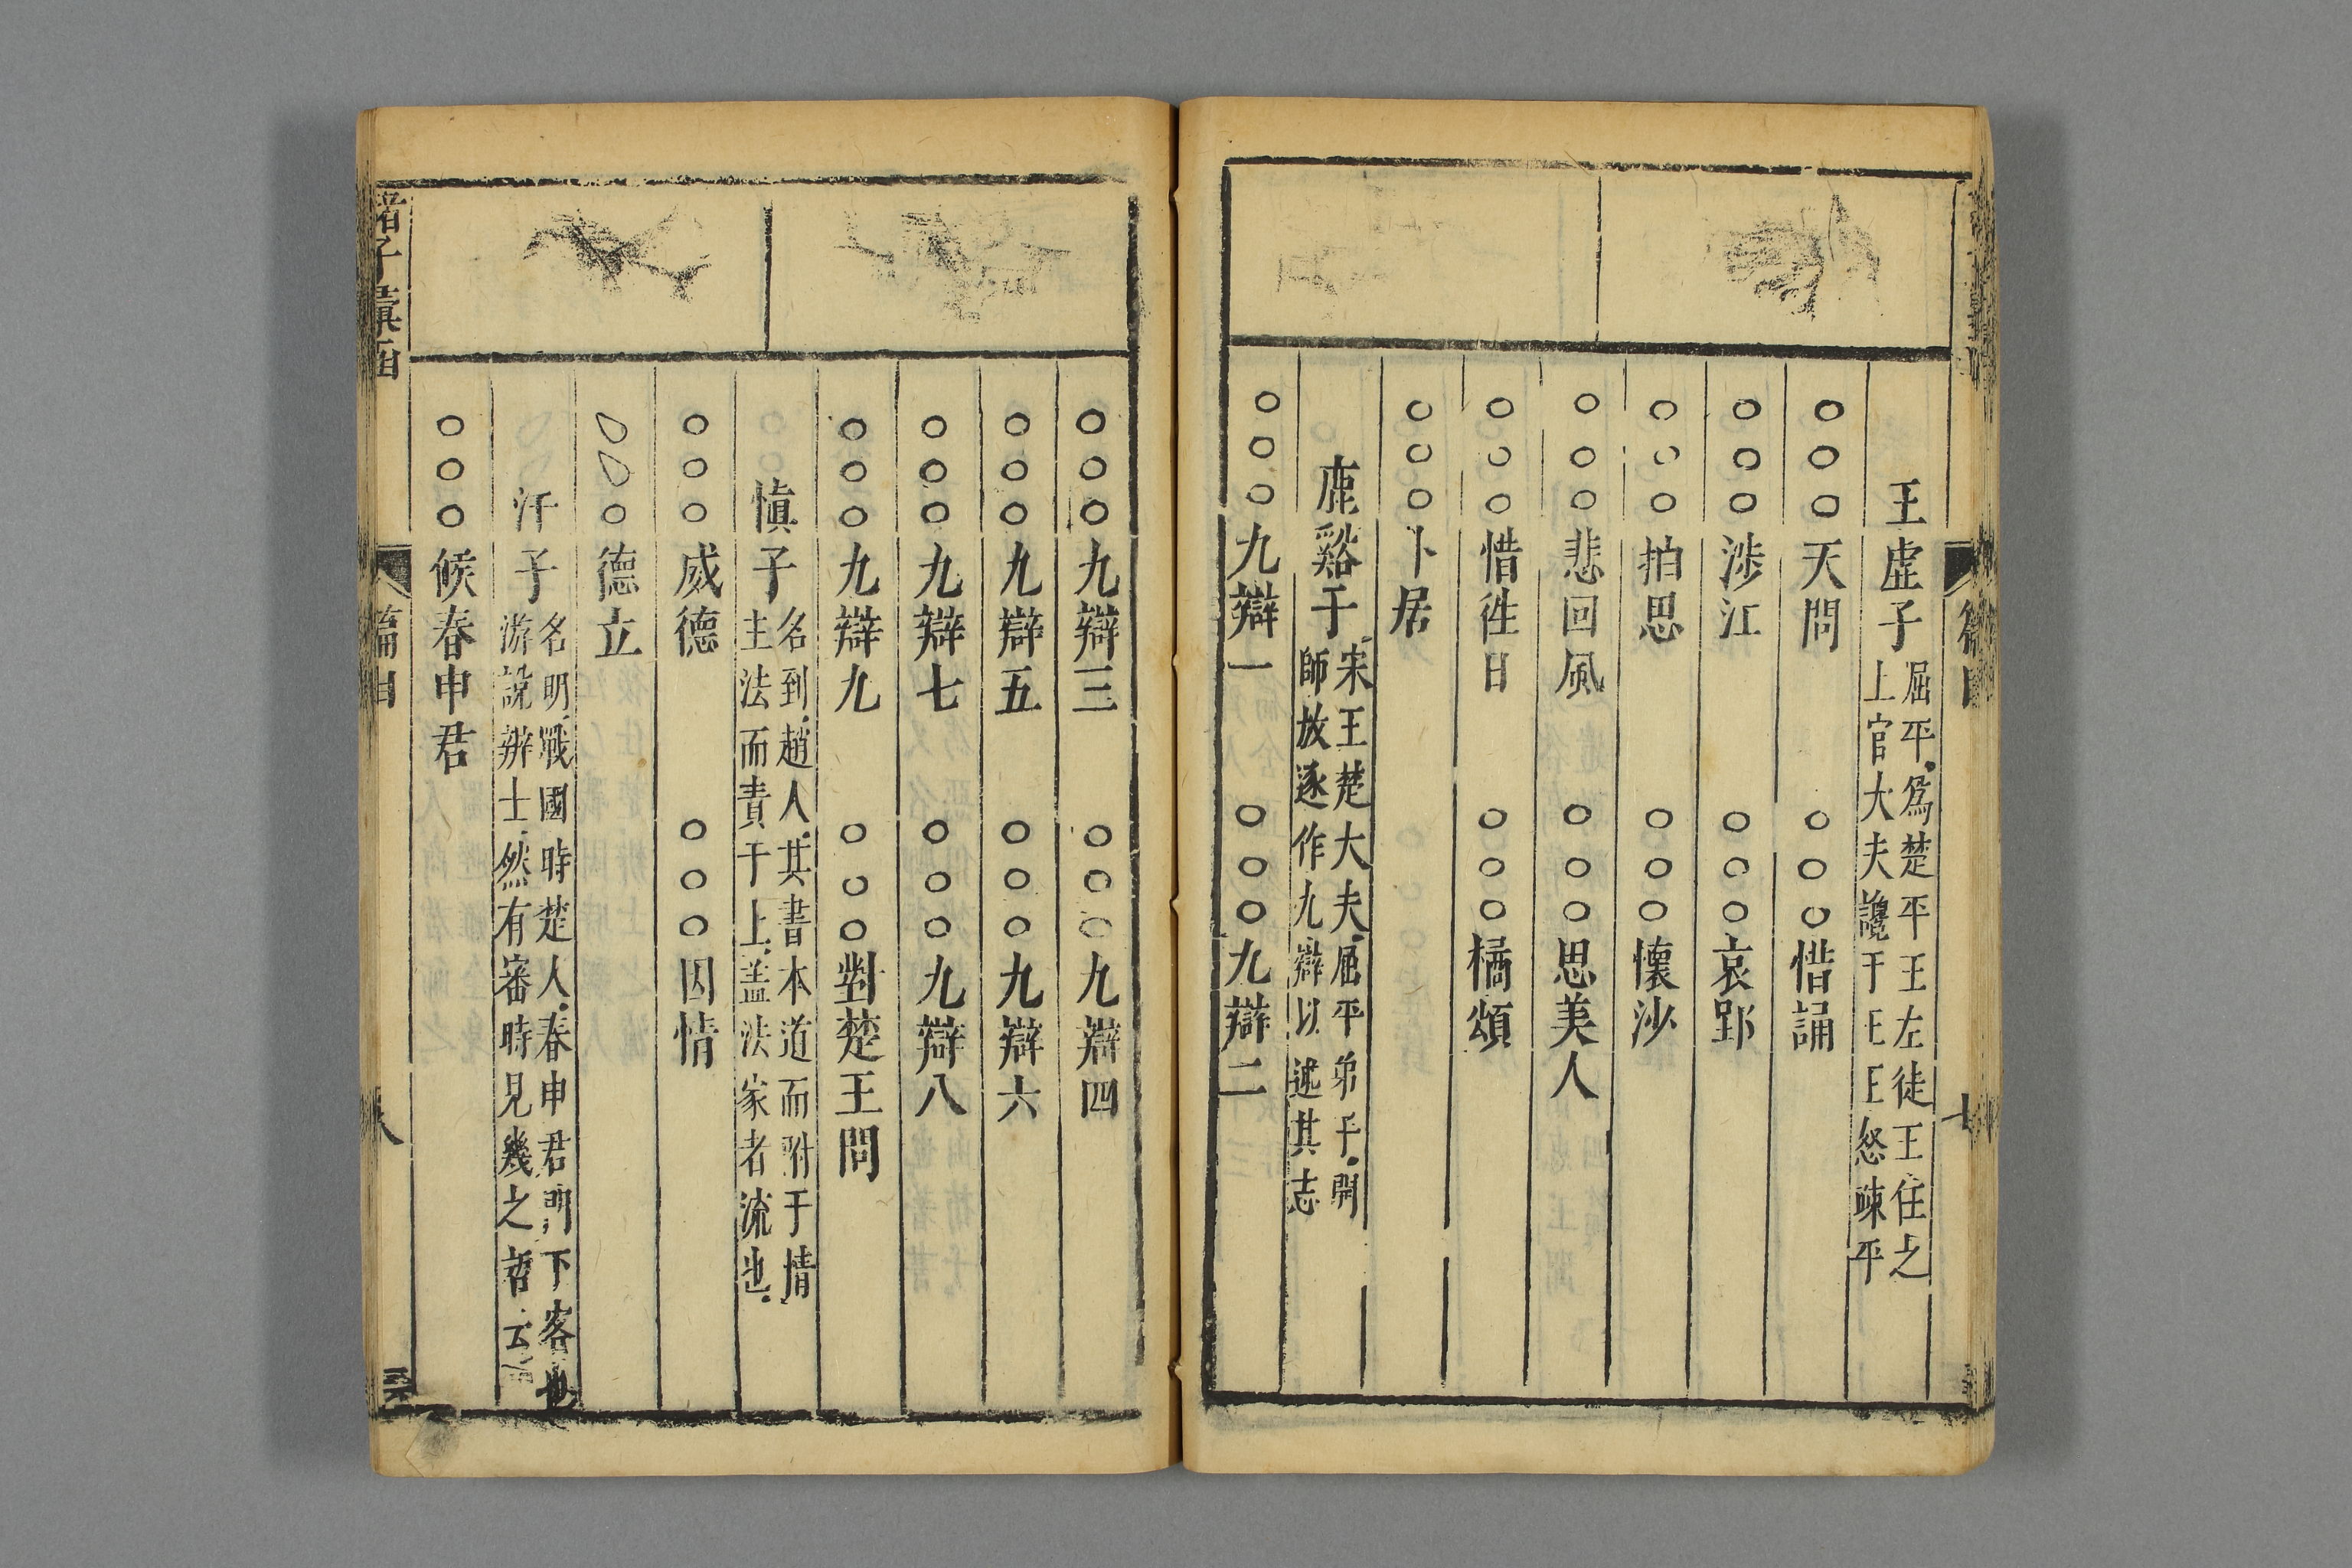 王虛子屈平爲楚平王左徒王任之
上官大夫讒于王王怒疎平
○○○天問　○○○惜誦
○○○涉江　○○○哀郢
○○○抽思　○○○懷沙
○○○悲回風　○○○思美人
○○○惜徃日　○○○橘頌
○○○卜居
鹿谿子宋王楚大夫屈平弟子閔
師放逐作九辯以述其志
○○○九辯一　○○○九辯二
七
○○○九辯三　○○○九辯四
○○○九辯五　○○○九辯六
○○○九辯七　○○○九辯八
○○○九辯九　○○○對楚王問
慎子名到趙人其書本道而附于情
主法而責于上盖法家者流也
○○○威德　○○○因情
○○○德立
汗子名明戰國時楚人春申君門下客也
游說辨士然有審時見幾之哲云
○○○候春申君
諸子彙函
篇目
八